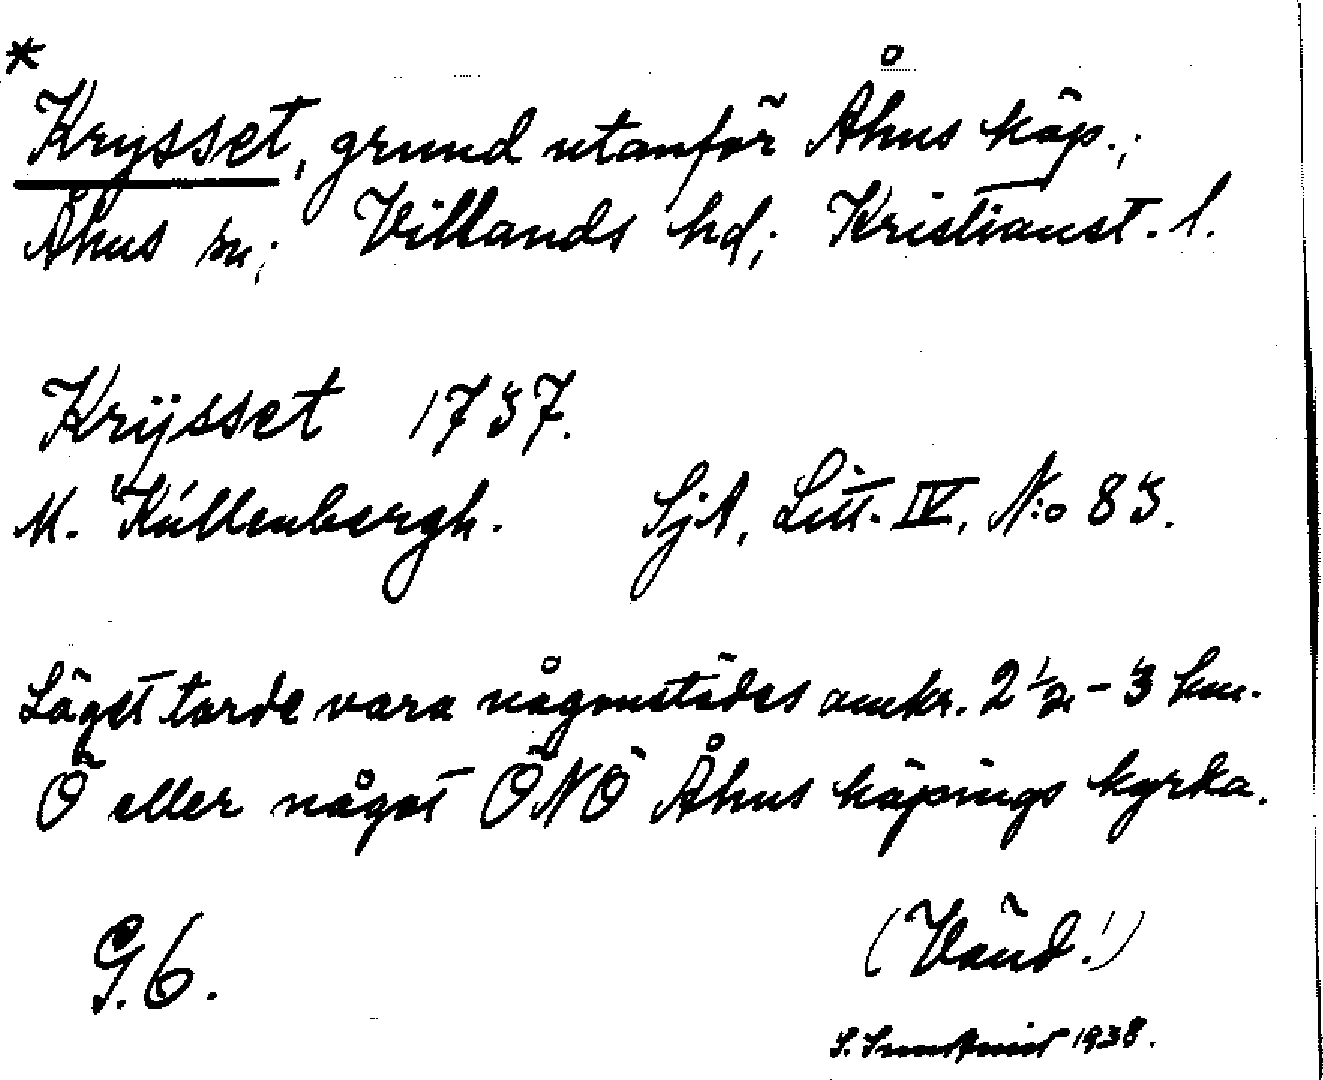 *
Krysset, grund utanför Åhus köp.;
Åhus sn; Villands hd; Kristianst. l.
Krÿsset 1737.
M. Kúllenbergh. SjA, Litt. IV, N:o 83.
Läget torde vara någonstädes omkr. 2 1/2 - 3 km.
Ö eller något ÖNÖ Åhus köpings kyrka.
G. 6.
(Vänd!)
S. 1938.